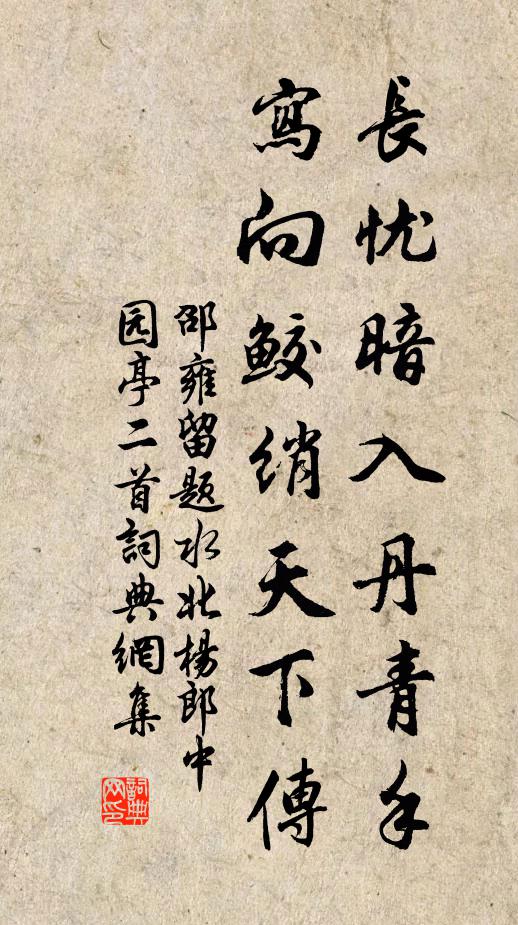 長忧暗入丹青手
寫向鮫綃天下傳
邵雍留题水北楊郎中
园亭二首詞典網集
詞典
网印